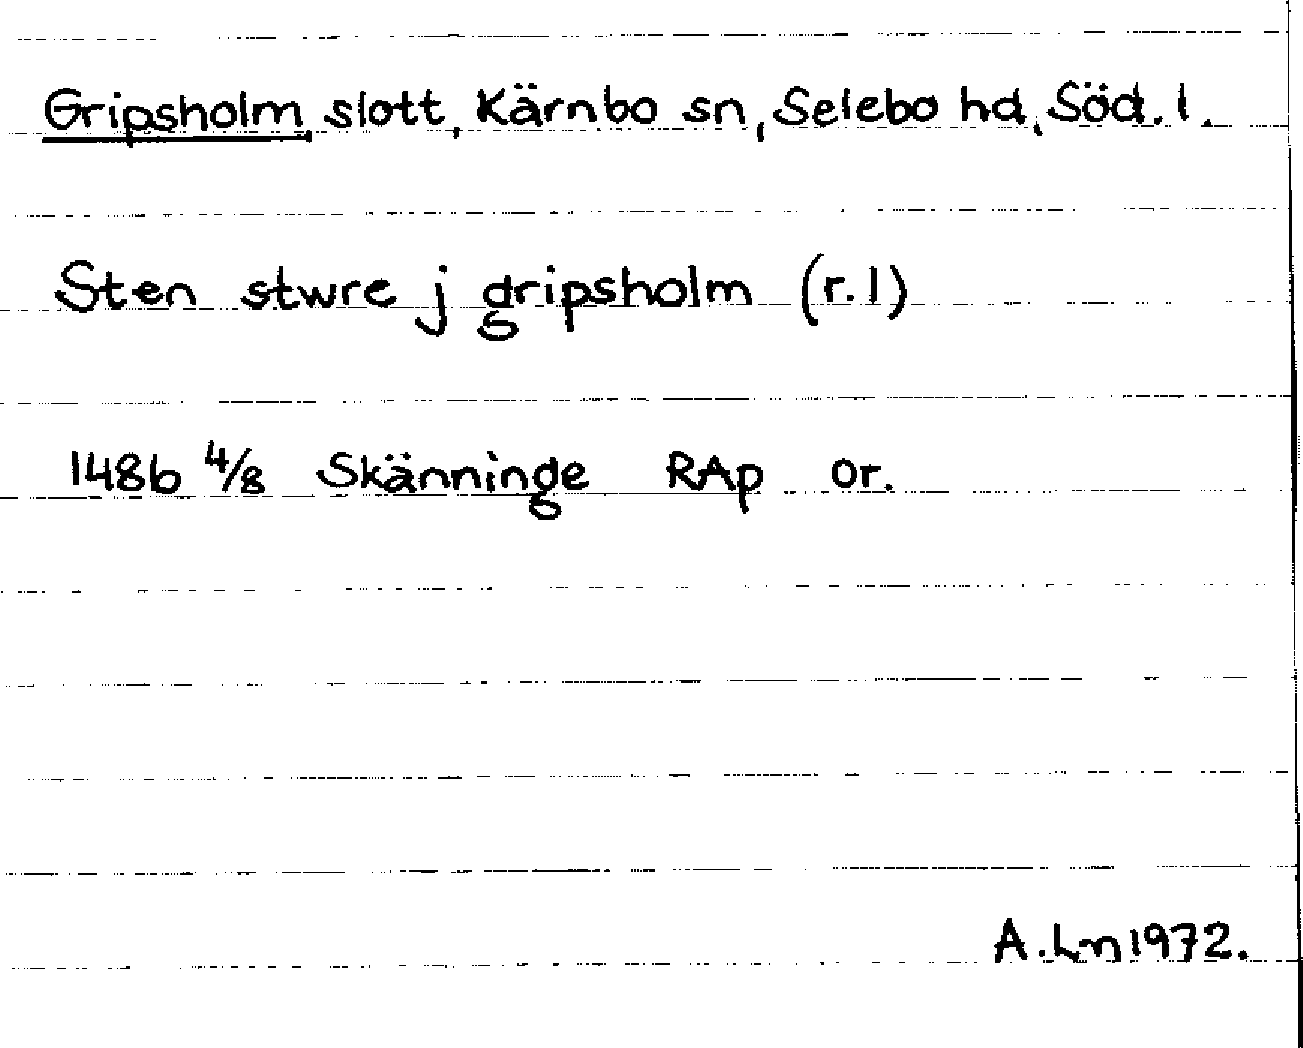 Gripsholm, slott, Kärnbo sn, Selebo hd, Söd. l.
Sten stwre j gripsholm (r.1)
1486 4/8 Skänninge RAp or.
A.Ln 1972.